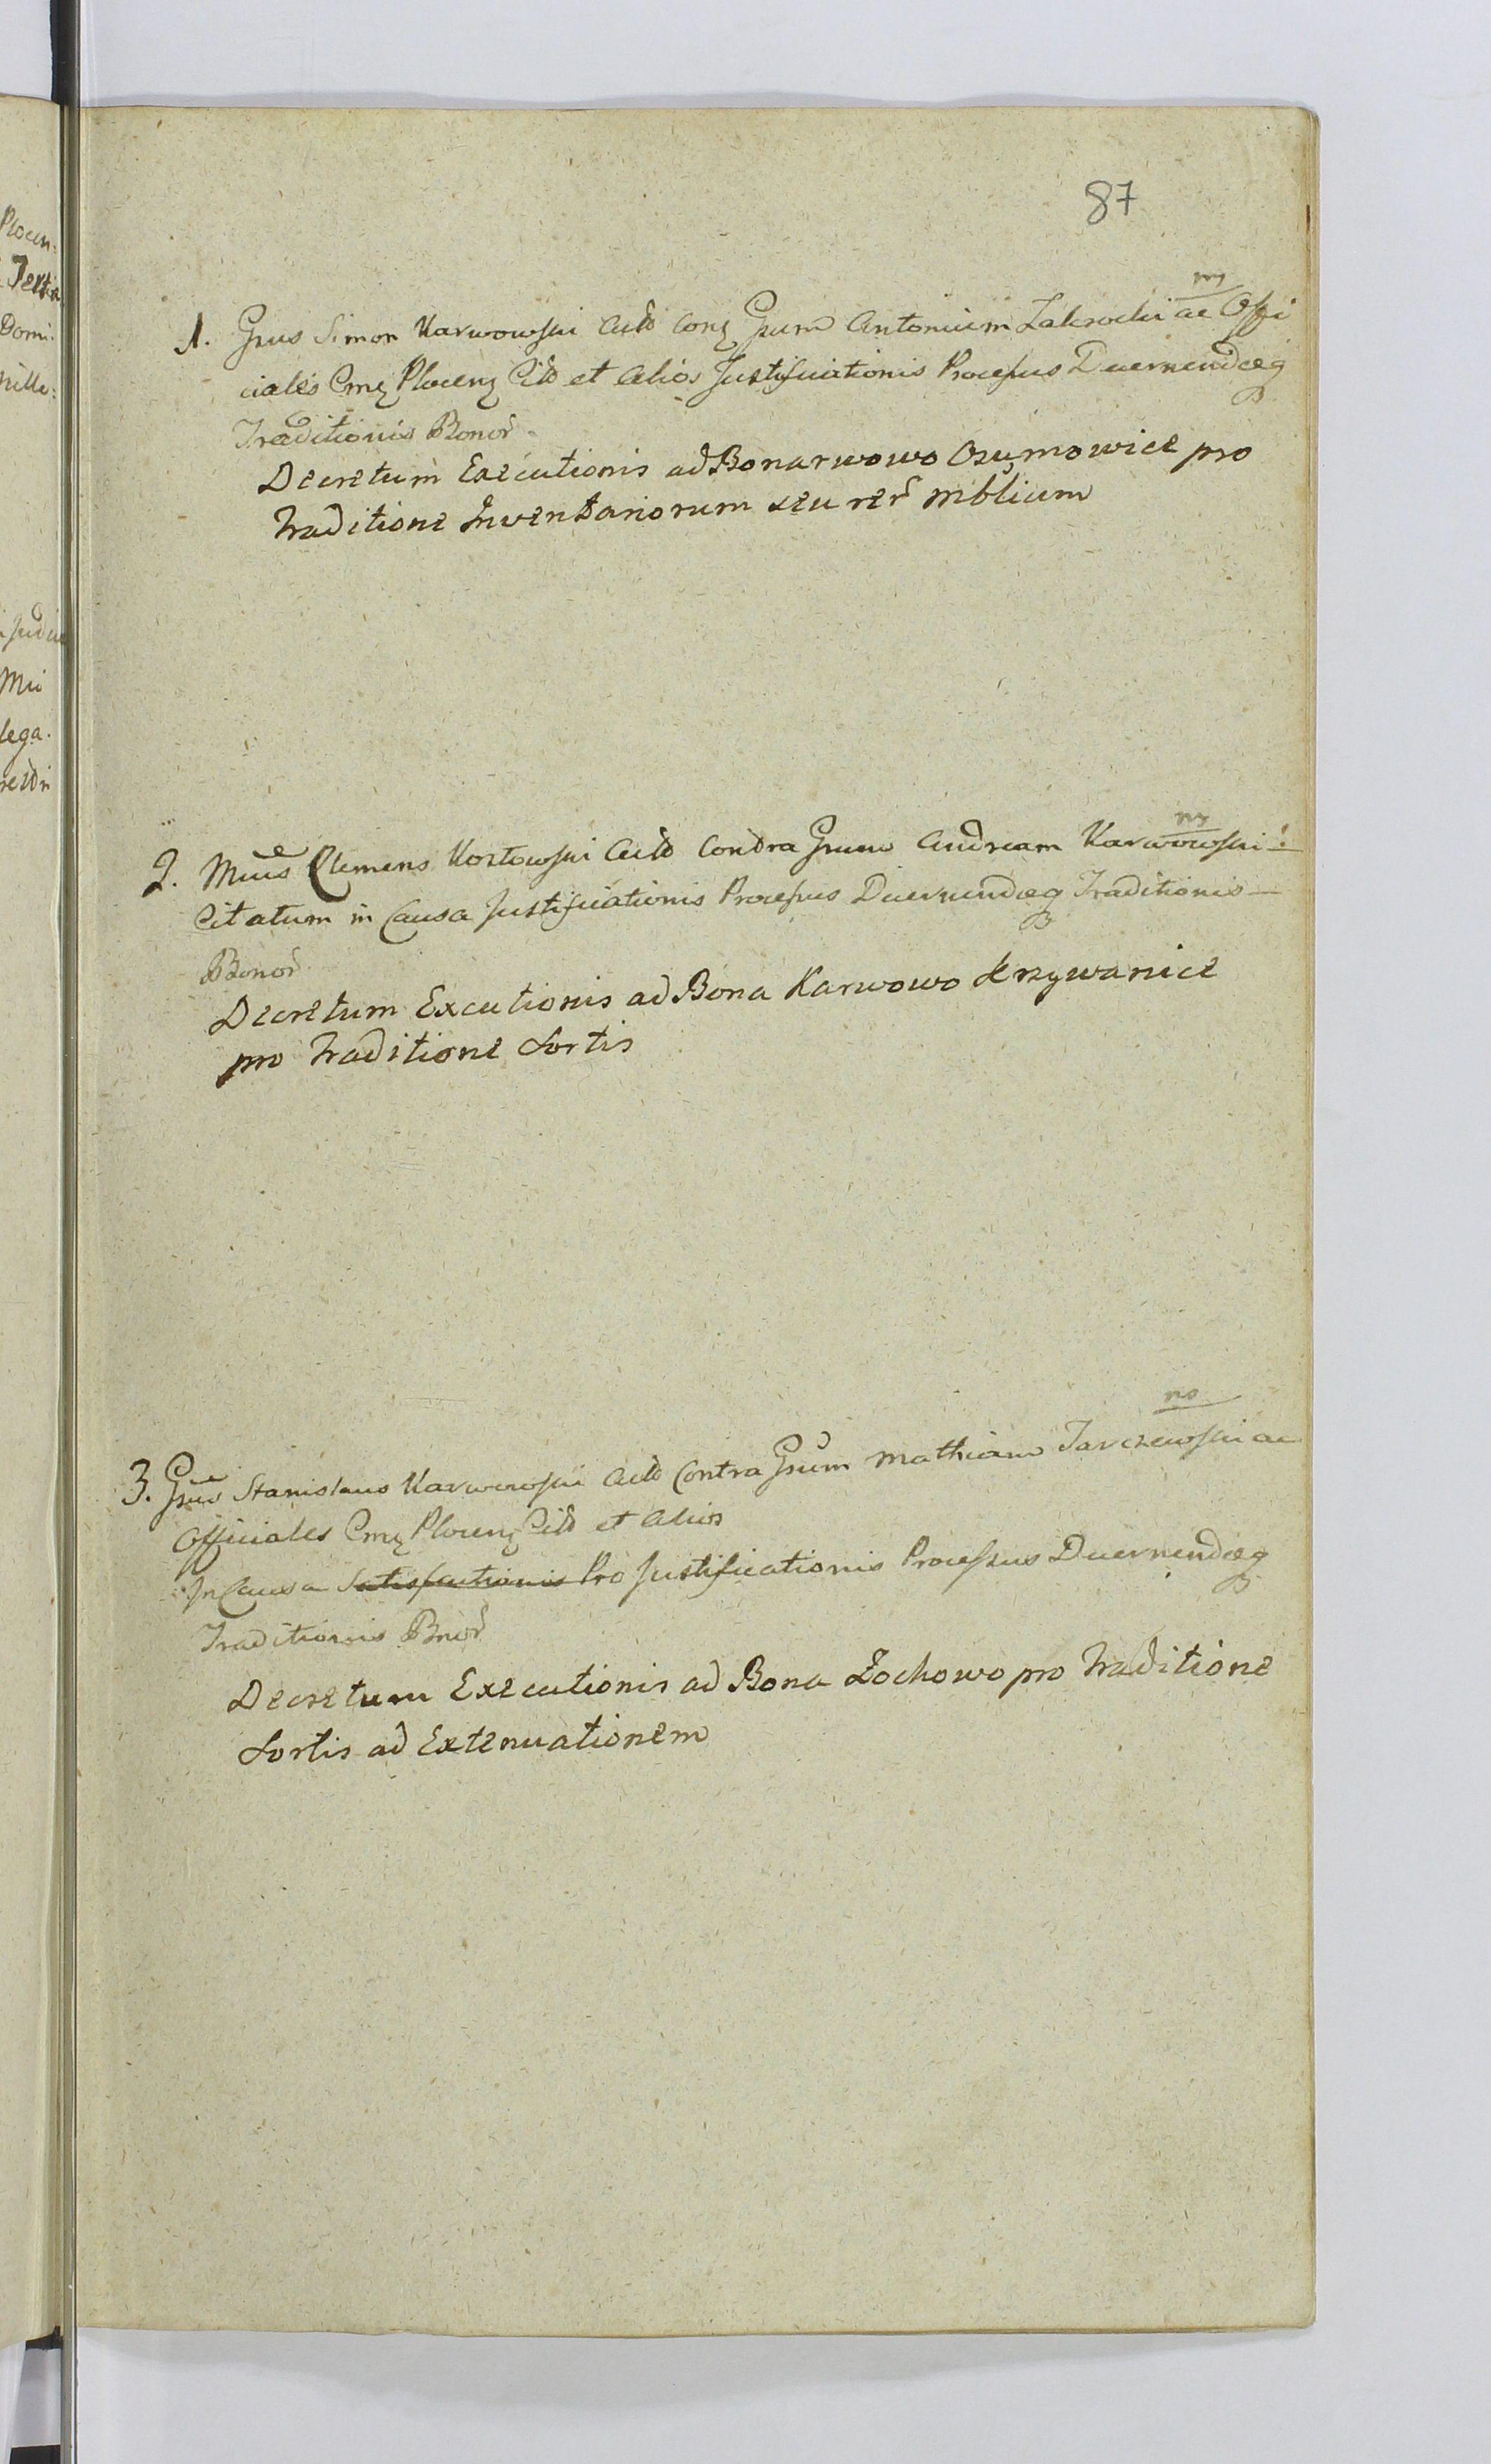 87
ny
1. Gsus Simon Karwowski Actd Conz Gsum Antonium Zakrocki ac Offi
ciales Cmz Plocenz Citd et Alios Justificationis Processus Decernendæq
Traditionis Bonor
Decretum Executionis ad Bonarwowo Osumowice pro
Traditione Inventariorum seu rer mblium
ny
2. Mcus Clemens Kozłowski Actd Contra Gsum Andream Karwowski
Citatum in Causa Justificationis Processus Decernendæq Traditionis
Bonor
Decretum Excutionis ad Bona Karwowo Krzywanice
pro Traditione Sortis
no
3. Gsus Stanislaus Karwowski Actd Contra Gsum Mathiam Tarczewski ac
Officiales Cmz Plocenz Citd et Alios
In Causa Satisfactionis Pro Justificationis Processus Decernendæq
Traditionis Bnor
Decretum Executionis ad Bona Zochowo pro Traditione
Sortis ad Extenuationem
Plocen:
Domi:
lega.